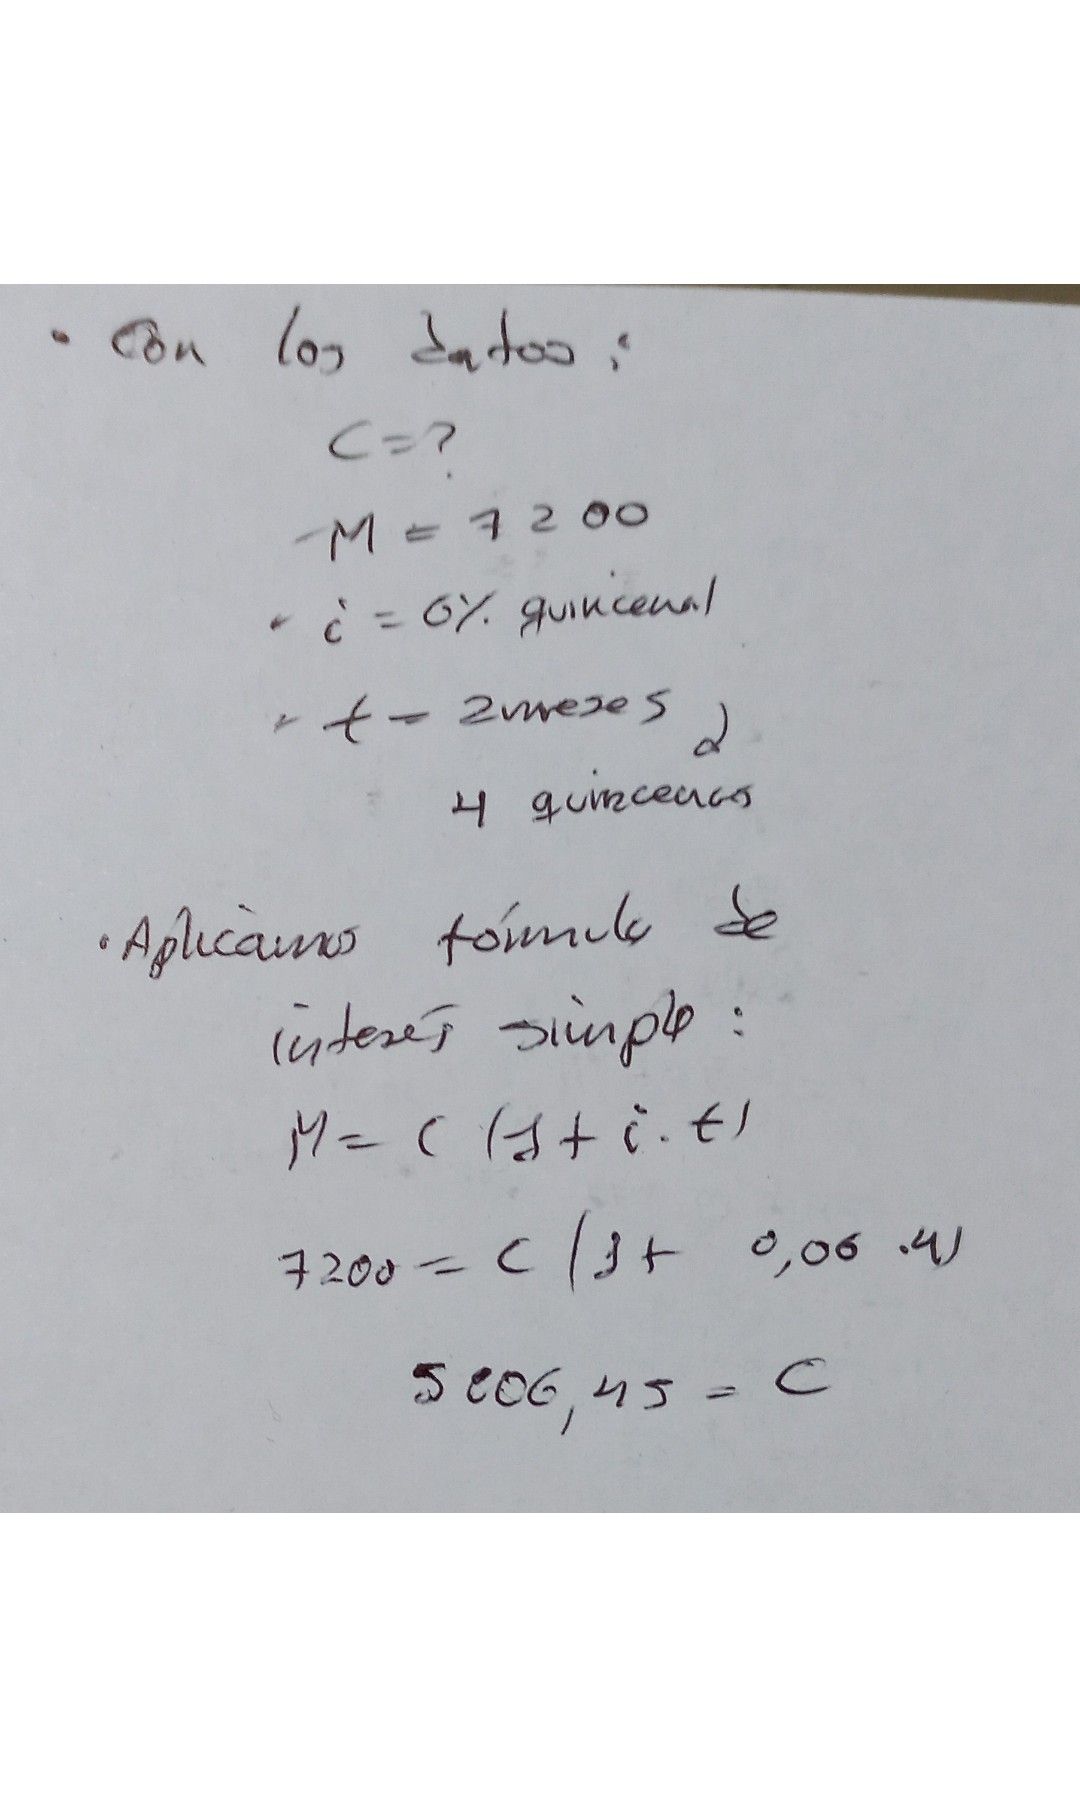 • Con los datos:
C = ?
- M = 7200
• i = 6% quincenal
• t = 2 meses
4 quincenas
• Aplicamos fórmula de
interés simple:
M = C (1 + i . t)
7200 = C (1 + 0,06 . 4)
5806,45 = C